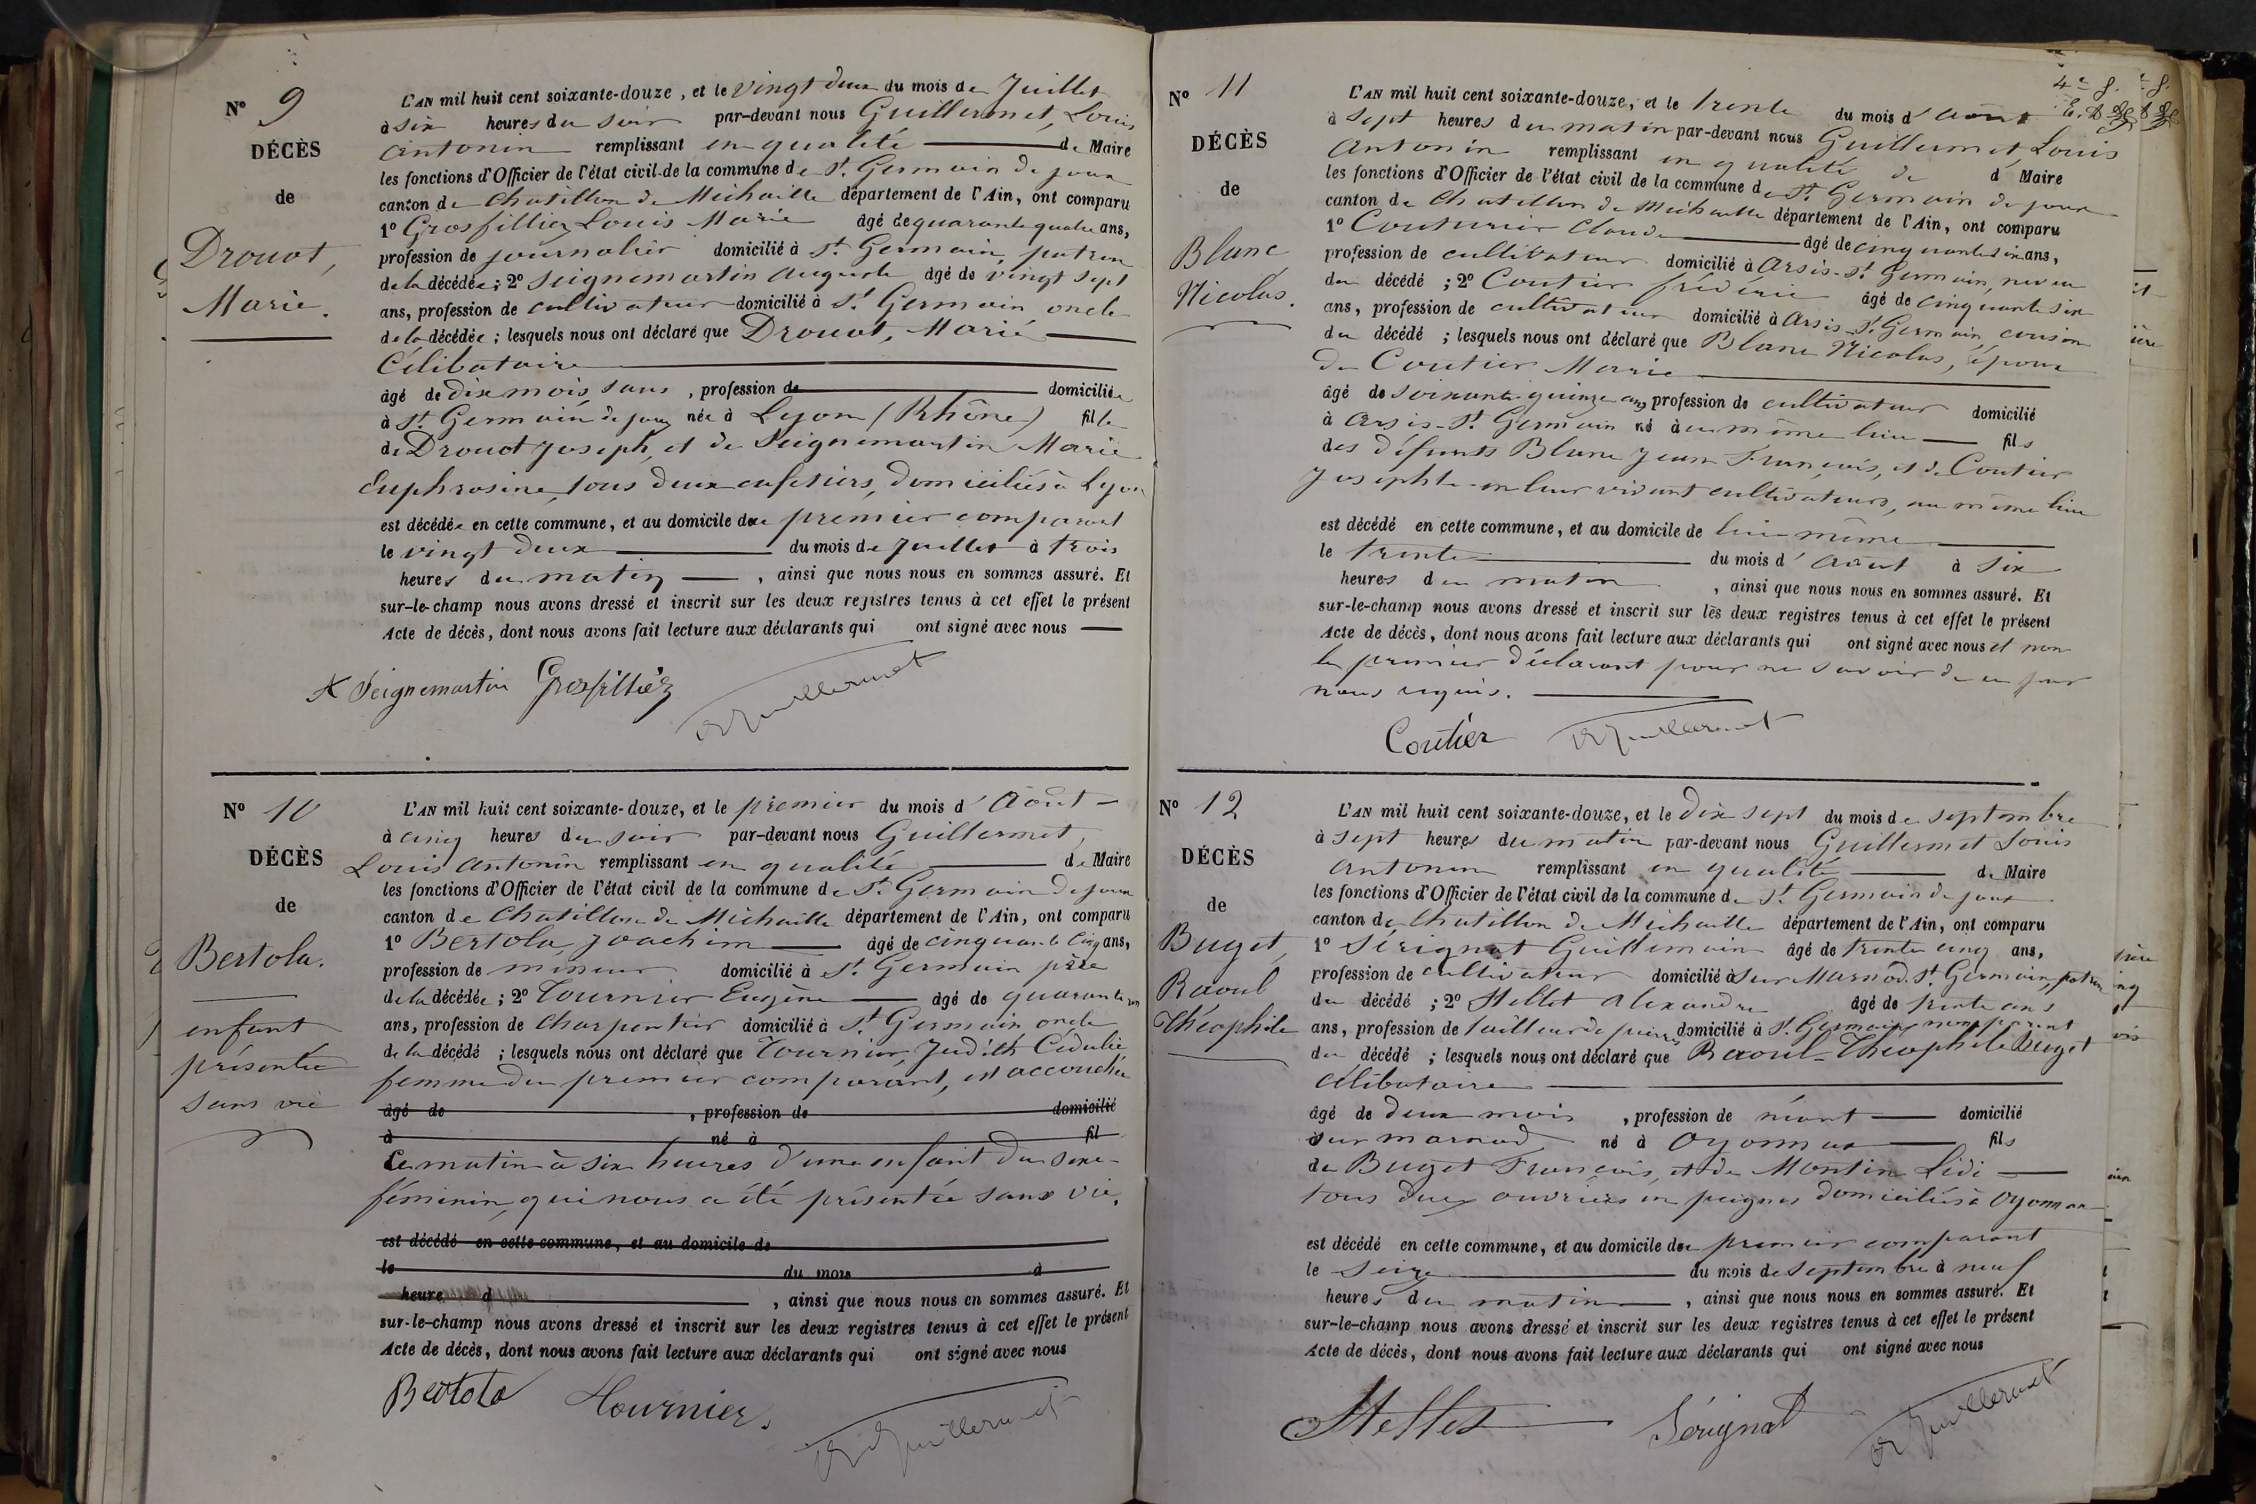 N° 9
DÉCÈS
de
Drouot,
Marie.
L'AN mil huit cent soixante-douze, et le vingt deux du mois de Juillet
à six heures du soir par-devant nous Guillermet, Louis
Antonin remplissant en qualité de Maire
les fonctions d'Officier de l'état civil de la commune de St. Germain de joux
canton de Chatillon de Michaille département de l'Ain, ont comparu
1° Grosfilliez Louis Marie âgé de quarante quatre ans,
profession de journalier domicilié à St. Germain, patron
de la décédée ; 2° Seignemartin Auguste âgé de vingt sept
ans, profession de cultivateur domicilié à St. Germain oncle
de la décédée ; lesquels nous ont déclaré que Drouot, Marie
Célibataire
âgé de dix mois, sans , profession de domiciliée
à St. Germain de joux née à Lyon (Rhône) fille
de Drouot Joseph, et de Seignemartin Marie
Euphrosine, tous deux cafetiers, domiciliés à Lyon
est décédée en cette commune, et au domicile du premier comparant
le vingt deux du mois de Juillet à trois
heures du matin , ainsi que nous nous en sommes assuré. Et
sur-le-champ nous avons dressé et inscrit sur les deux registres tenus à cet effet le présent
Acte de décès, dont nous avons fait lecture aux déclarants qui ont signé avec nous
A Seignemartin Grosfilliez Guillermet
N° 10
DÉCÈS
de
Bertola.
enfant
présentée
sans vie
L'AN mil huit cent soixante-douze, et le premier du mois d'Août
à cinq heures du soir par-devant nous Guillermet,
Louis Antonin remplissant en qualité de Maire
les fonctions d'Officier de l'état civil de la commune de St. Germain de joux
canton de Chatillon de Michaille département de l'Ain, ont comparu
1° Bertola, Joachim âgé de cinquante cinq ans,
profession de mineur domicilié à St. Germain père
de la décédée ; 2° Tournier Eugène âgé de quarante
ans, profession de charpentier domicilié à St. Germain oncle
de la décédé ; lesquels nous ont déclaré que Tournier, Judith Cédulie
femme du premier comparant, est accouchée
âgé de , profession de domicilié
à né à fil
ce matin à six heures d'une enfant du sexe
féminin, qui nous a été présentée sans vie.
est décédé en cette commune, et au domicile de
le du mois à
heure d , ainsi que nous nous en sommes assuré. Et
sur-le-champ nous avons dressé et inscrit sur les deux registres tenus à cet effet le présent
Acte de décès, dont nous avons fait lecture aux déclarants qui ont signé avec nous
Bertola Tournier Guillermet
N° 11
DÉCÈS
de
Blanc
Nicolas.
L'AN mil huit cent soixante-douze, et le trente du mois d'Août
à sept heures du matin par-devant nous Guillermet, Louis
Antonin remplissant en qualité de d Maire
les fonctions d'Officier de l'état civil de la commune de St. Germain de joux
canton de Chatillon de Michaille département de l'Ain, ont comparu
1° Couturier Claude âgé de cinquante six ans,
profession de cultivateur domicilié à Arsis-St. Germain, neveu
du décédé ; 2° Coutier frédéric âgé de cinquante six
ans, profession de cultivateur domicilié à Arsis-St. Germain, cousin
du décédé ; lesquels nous ont déclaré que Blanc Nicolas, époux
de Coutier Marie
âgé de soixante quinze ans profession de cultivateur domicilié
à Arsis-St. Germain né à au même lieu fils
des défunts Blanc Jean François, et de Coutier
Josephte en leur vivant cultivateurs, au même lieu
est décédé en cette commune, et au domicile de lui même
le trente du mois d'Août à six
heures du matin , ainsi que nous nous en sommes assuré. Et
sur-le-champ nous avons dressé et inscrit sur les deux registres tenus à cet effet le présent
Acte de décès, dont nous avons fait lecture aux déclarants qui ont signé avec nous et non
le premier déclarant pour ne savoir de ce par
nous requis.
Coutier Guillermet
N° 12
DÉCÈS
de
Buget,
Raoul
Théophile
L'AN mil huit cent soixante-douze, et le dix sept du mois de septembre
à sept heures du matin par-devant nous Guillermet Louis
Antonin remplissant en qualité de Maire
les fonctions d'Officier de l'état civil de la commune de St. Germain de joux
canton de Chatillon de Michaille département de l'Ain, ont comparu
1° Sérignat Guillemain âgé de trente cinq ans,
profession de cultivateur domicilié à sur Marnod St. Germain, patron
du décédé ; 2° Stellet Alexandre âgé de trente ans
ans, profession de tailleur de pierres domicilié à St. Germain, non parent
du décédé ; lesquels nous ont déclaré que Raoul-Théophile Buget
célibataire
âgé de deux mois , profession de néant domicilié
à sur marnod né à Oyonnax fils
de Buget François, et de Montin Lidi
tous deux ouvriers en peignes domiciliés à Oyonnax
est décédé en cette commune, et au domicile du premier comparant
le seize du mois de septembre à neuf
heures du matin , ainsi que nous nous en sommes assuré. Et
sur-le-champ nous avons dressé et inscrit sur les deux registres tenus à cet effet le présent
Acte de décès, dont nous avons fait lecture aux déclarants qui ont signé avec nous
Stellet Sérignat Guillermet